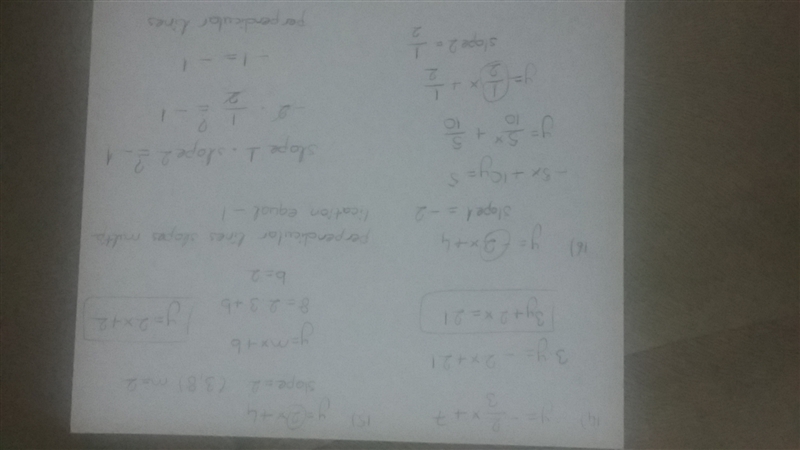 14) y = - 2/3 x + 7
3y = - 2x + 21
3y + 2x = 21
15) y = 2x + 4
slope = 2 (3,8) m = 2
y = mx + b
8 = 2.3 + b
b = 2
y = 2x + 2
16) y = -2x + 4
slope1 = -2
-5x + 10y = 5
y = 5x/10 + 5/10
y = 1/2 x + 1/2
slope2 = 1/2
perpendicular lines slopes multip
lication equal -1
slope 1 . slope 2 ?= -1
-2 . 1/2 ?= -1
-1 = -1
perpendicular lines